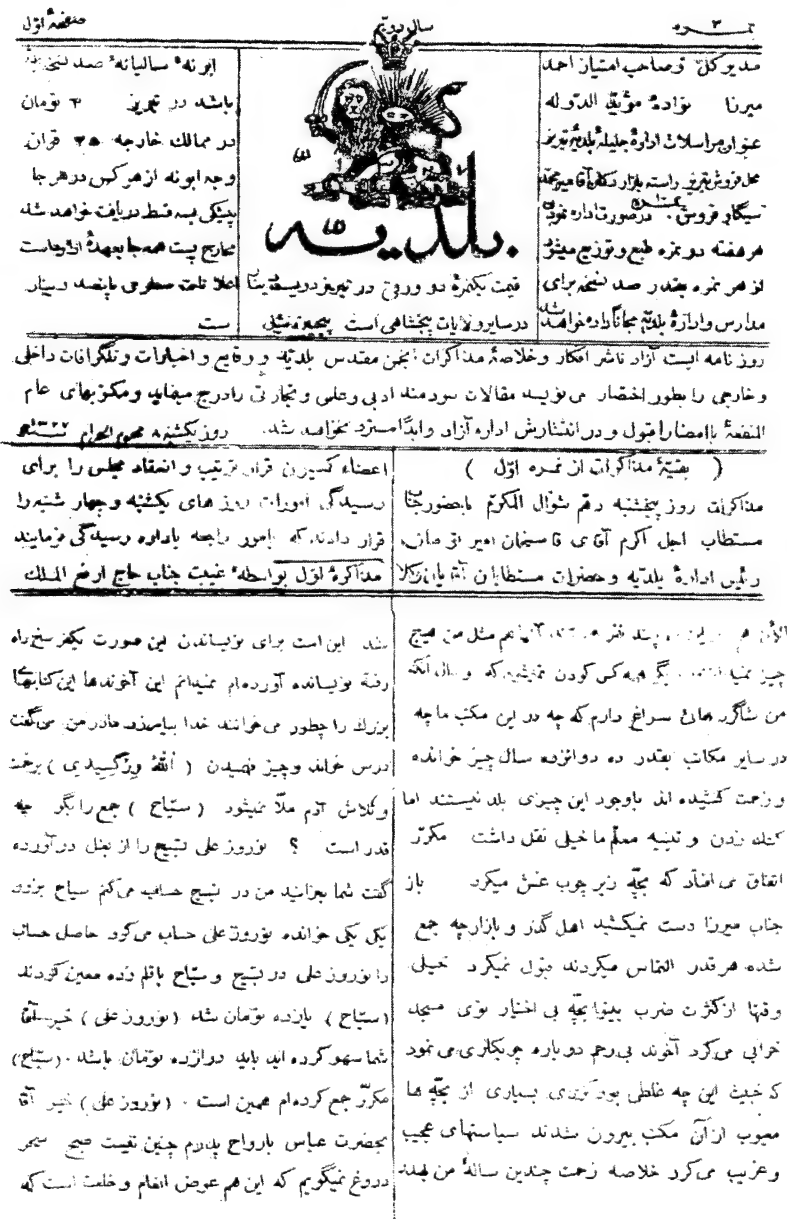 نمره ۳
سال دویم
صفحهٔ اوّل
مدیر کلّ و صاحب امتیاز احمد
میرزا نوادهٔ مؤیّد الدّوله
عنوان مراسلات ادارهٔ جلیلهٔ بلدیهٔ تبریز
محل فروش تبریز راسته بازار دکان آقا میر محمد
سیگار فروش . درصورت اداره
هر هفته دو نمره طبع و توزیع میشود
از هر نمره بقدر صد نسخه برای
مدارس و ادارهٔ بلدیّه مجاناً داده خواهد شد
بلدیه
قیمت یکنمرهٔ دو ورقی در تبریز دویست دینار
در سایر ولایات پنجشاهی است
ابونهٔ سالیانهٔ صد نسخه
باشد در تبریز ۳ تومان
در ممالک خارجه ۳۵ قران
وجه ابونه از هر کس در هر جا
پیشکی بسه قسط دریافت خواهد شد
مخارج پست همه جا بعهدهٔ اداره است
اعلانات سطری پانصد دینار
است
روزنامه ایست آزاد ناشر افکار و خلاصهٔ مذاکرات انجمن مقدس بلدیّه و وقایع و اخبارات و تلگرافات داخلی
و خارجی را بطور اختصار می نویسد مقالات سودمند ادبی و علمی و تجارتی را درج مینماید و مکتوبهای عام
المنفعهٔ با امضا را قبول و در انتشارش اداره آزاد و ابداً مسترد نخواهد شد . روز یکشنبه ۸ محرم الحرام ۱۳۲۷
( بقیّهٔ مذاکرات از نمره اوّل )
مذاکرات روز پنجشنبه دهم شوّال المکرّم با حضور جناب
مستطاب اجل اکرم آقای قاسمخان امیر تومان
رئیس ادارهٔ بلدیّه و حضرات مستطابان آقایان وکلا
اعضاء کمسیون قرار ترتیب و انعقاد مجلس را برای
رسیدگی امورات روز های یکشنبه و چهار شنبه را
قرار دادند که بامور راجعه باداره رسیدگی فرمایند
مذاکرهٔ اوّل بواسطهٔ غیبت جناب حاج ارفع الملک
الآن هم در این ده چند نفر هستند آنها هم مثل من هیچ
چیز نمیدانند دیگر همه کس کودن نمیشود که و حال آنکه
من شاگرد هائ سراغ دارم که چه در این مکتب ما چه
در سایر مکاتب بقدر ده دوانزده سال چیز خوانده
و زحمت کشیده اند باوجود این چیزی بلد نیستند اما
کتک زدن و تنبیه معلّم ما خیلی نقل داشت مکرّر
اتفاق می افتاد که بچّه زیر چوب غش میکرد باز
جناب میرزا دست نمیکشید اهل گذر و بازارچه جمع
شده هر قدر التماس میکردند قبول نمیکرد خیلی
وقتها از کثرت ضرب بینوا بچّه بی اختیار توی مسجد
خرابی می کرد آخوند بی رحم دوباره چوبکاری می نمود
که خبیث این چه غلطی بود کردی بسیاری از بچّه ها
معیوب از آن مکتب بیرون شدند سیاستهای عجیب
و غریب می کرد خلاصه زحمت چندین سالهٔ من
شد این است برای نویساندن این صورت یکفرسخ راه
رفته نویسانده آورده ام نمیدانم این آخوندها این کتابهای
بزرگ را چطور می خوانند خدا بیامرزد مادر من می گفت
درس خواندن و چیز فهمیدن ( اَللّه وِرْگیسیدی ) بزحمت
و تلاش آدم ملّا نمیشود ( سیّاح ) جمع را بگو چه
قدر است ؟ نوروز علی تسبیح را از بغل در آورده
گفت شما بخوانید من در تسبیح حساب می کنم سیاح بزودی
یکی یکی خوانده نوروز علی حساب می کرد حاصل حساب
را نوروز علی در تسبیح و سیّاح باقلم زده معین کردند
( سیّاح ) یازده تومان شد ( نوروز علی ) خیر آقا
شما سهو کرده اید باید دوازده تومان باشد . ( سیّاح )
مکرّر جمع کرده ام همین است . ( نوروز علی ) خیر آقا
بحضرت عباس بارواح پدرم چنین نیست صبح سحر
دروغ نمیگویم که این هم عوض انعام و خلعت است که